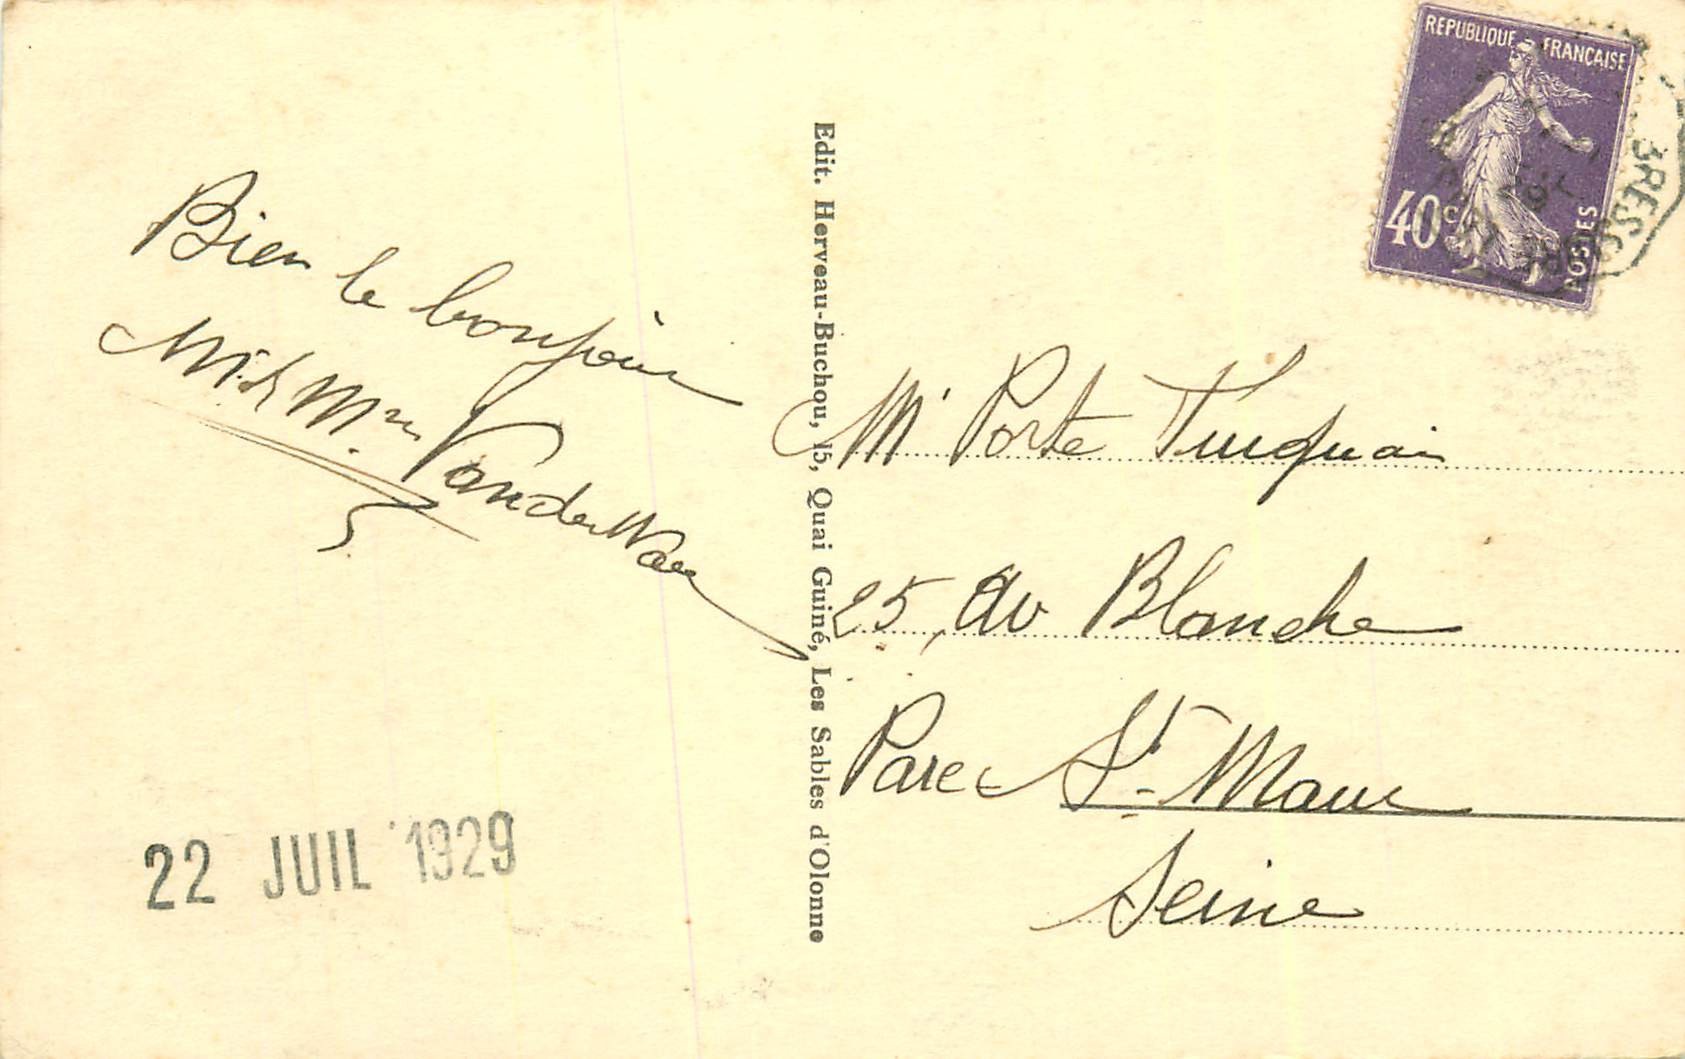 Bien le bonjour
Mr & Mme
22 JUIL 1929
Edit. Herveau-Buchou, 15, Quai Guiné, Les Sables d'Olonne
REPUBLIQUE FRANÇAISE
40c
POSTES
BRESSUIRE
Mr Porte
25, Av Blanche
Parc St Maur
Seine